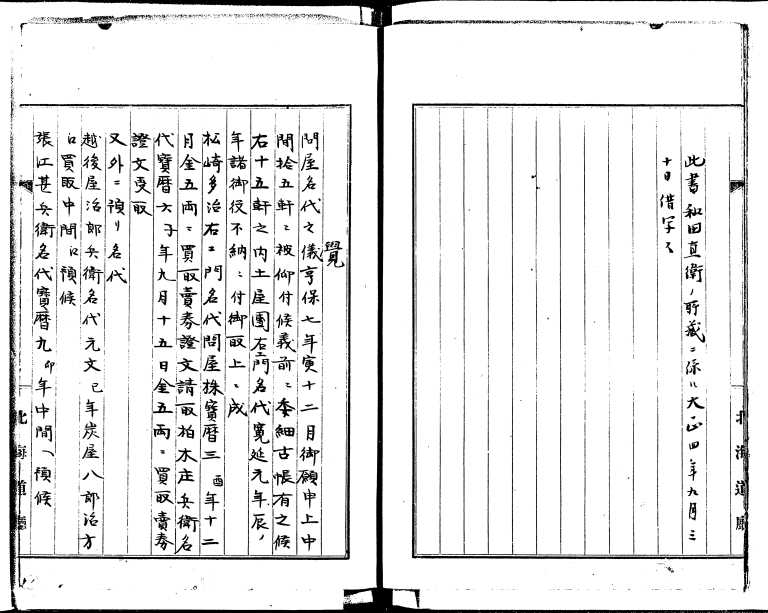 此書和田直衛ノ所藏ニ係ル大正四年九月三
十日借写ス
北海道廳
覺
問屋名代之儀享保七年寅十二月御願申上中
間拾五軒ニ被仰付候義前ニ委細古帳有之候
右十五軒之内土屋團右エ門名代寛延元年辰ノ
年諸御役不納ニ付御取上ニ成
松崎多治右エ門名代問屋株寶暦三酉年十二
月金五両ニ買取賣券證文請取柏木庄兵衛名
代寶暦六子年九月十五日金五両ニ買取賣券
證文受取
又外ニ預リ名代
越後屋治郎兵衛名代元文巳年炭屋八郎治方
ロ買取中間ロ預候
張江甚兵衛名代寶暦九卯年中間へ預候
北海道廳